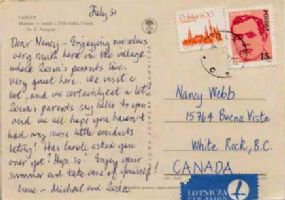 Friday 31
ŁAŃCUT
Dear Nancy – Enjoying ourselves
very much here in the village
where Zosia's parents live.
Very quiet here. We visit a
lot, and we certainly eat a lot!
Zosia's parents say hello to you
and we all hope you haven't
had any more little accidents
lately! Has Carole asked you
over yet? Hope so! Enjoy your
summer and take care of yourself!
Love – Michael and Zosia
POLSKA
POLSKA
15
Nancy Webb
15764 Buena Vista
White Rock, B.C.
CANADA
LOTNICZA
PAR AVION